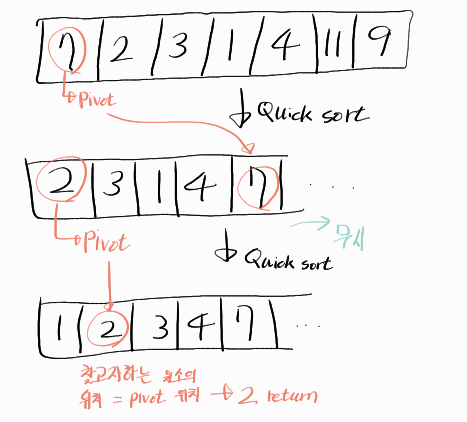 7 2 3 1 4 11 9
Pivot
Quick sort
2 3 1 4 7 ....
무시
Pivot
Quick sort
1 2 3 4 7 ...
찾고자하는 원소의
위치 = pivot 위치 → 2 return